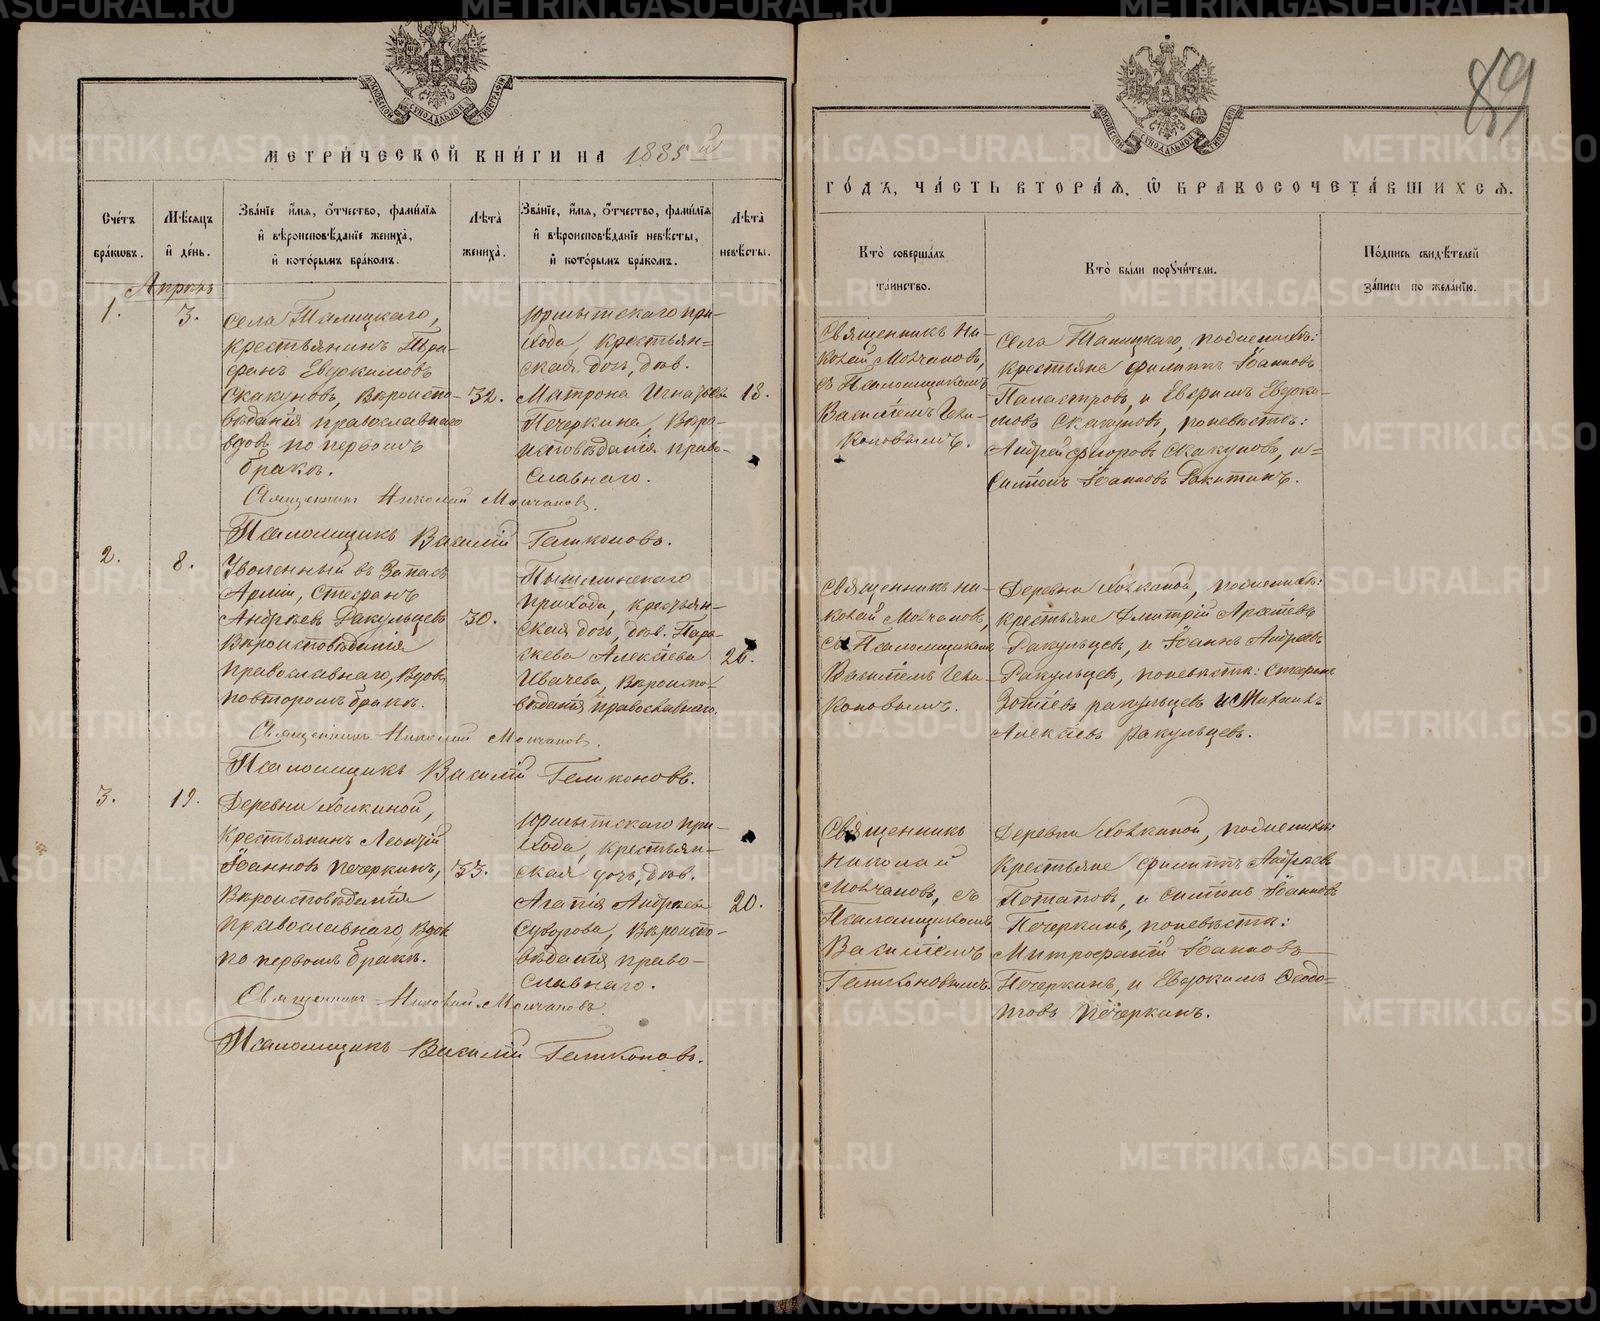 МЕТРИЧЕСКОЙ КНИГИ НА 1885й
Счетъ браковъ.
Мѣсяцъ и день.
Званіе, имя, отчество, фамилія и вѣроисповѣданіе жениха, и которымъ бракомъ.
Лѣта жениха.
Званіе, имя, отчество, фамилія и вѣроисповѣданіе невѣсты, и которымъ бракомъ.
Лѣта невѣсты.
Апрѣль
1.
3.
Села Талицкаго,
крестьянинъ
Евдокимовъ
Скакуновъ, вѣроиспо-
вѣданія православнаго
вдовъ по первомъ
бракѣ.
32.
Юрмытскаго при-
хода, крестьян-
ская дочь, дѣв.
Матрона Игнатьева
Печеркина, вѣро-
исповѣданія право-
славнаго.
18.
Священникъ Николай Молчановъ.
Псаломщикъ Василій
2.
8.
Уволенный въ запасъ
Арміи, Стефанъ
Андреевъ Ракульцевъ
вѣроисповѣданія
православнаго, вдовъ
повторомъ бракѣ.
30.
Пышминскаго
прихода, крестьян-
ская дочь, дѣв. Пара-
скева Алексѣева
Ивачева, вѣроиспо-
вѣданія православнаго.
26.
Священникъ Николай Молчановъ.
Псаломщикъ Василій
3.
19.
Деревни Холкиной,
крестьянинъ Леонтій
Іоанновъ Печеркинъ,
вѣроисповѣданія
православнаго, вдовъ
по первомъ бракѣ.
33.
Юрмытскаго при-
хода, крестьян-
ская дочь, дѣв.
Агапія Андреева
Суворова, вѣроиспо-
вѣданія право-
славнаго.
20.
Священникъ Николай Молчановъ.
Псаломщикъ Василій
89
МОСКОВСКОЙ СѴНОДАЛЬНОЙ ТИПОГРАФІИ
ГОДЪ, ЧАСТЬ ВТОРАЯ, Ѡ БРАКОСОЧЕТАВШИХСЯ.
Кто совершалъ таинство.
Кто были поручители.
Подпись свидѣтелей записи по желанію.
Священникъ Ни-
колай Молчановъ,
съ Псаломщикомъ
Василіемъ
Села Талицкаго, поженихѣ:
крестьяне Филиппъ Іоанновъ
и Ефремъ Евдоки-
мовъ Скакуновъ, поневѣстѣ:
Андрей Скакуновъ, и
Іоанновъ Ракитинъ.
Священникъ Ни-
колай Молчановъ,
съ Псаломщикомъ
Василіемъ
Деревни Холкиной, поженихѣ:
крестьяне Дмитрій
Ракульцевъ, и Іоаннъ Андреевъ
Ракульцевъ, поневѣстѣ: Стефанъ
Зотіевъ Ракульцевъ и Михаилъ
Алексѣевъ Ракульцевъ.
Священникъ
Николай
Молчановъ, съ
Псаломщикомъ
Василіемъ
Деревни Холкиной, поженихѣ:
Крестьяне Филиппъ Андреевъ
Потаповъ, и Іоанновъ
Печеркинъ, поневѣстѣ:
Митрофаній Іоанновъ
Печеркинъ, и Евдокимъ Ѳедо-
товъ Печеркинъ.
METRIKI.GASO-URAL.RU